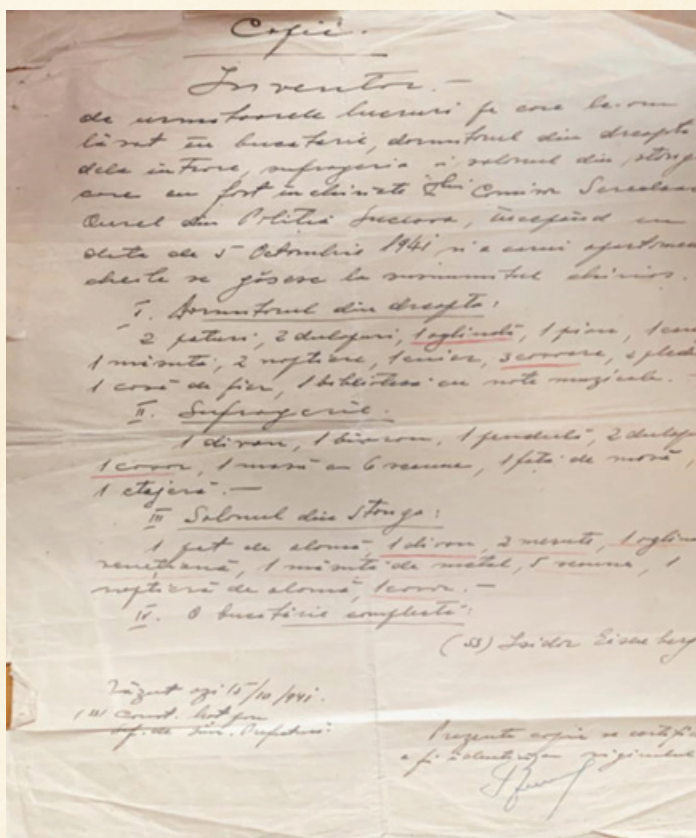 Copie.
Inventar.-
de urmatoarele lucruri pe care le-am
lăsat în bucatarie, dormitorul din dreapta
dela intrare, sufrageria și salonul din stânga
care au fost închiriate Comisar
Aurel din Politia Suceava, începând cu
data de 5 Octombrie 1941 și a carui apartament
cheile se găsesc la susnumitul chirias.
I. Dormitorul din dreapta:
2 paturi, 2 dulapuri, 1 oglindă, 1 pian, 1
1 măsuță, 2 noptiere, 1 cuier, 3 covoare,
1 casă de fier, 1 biblioteca cu note muzicale.-
II. Sufragerie.
1 divan, 1 birou, 1 pendulă, 2
1 covor, 1 masă cu 6 scaune, 1 față de masă,
1 etajeră.-
III Salonul din stanga:
1 pat de alamă, 1 divan, 2 mesute, 1
venețiană, 1 măsuță de metal, 5 scaune, 1
noptieră de alamă, 1 covor.-
IV. O bucatărie complectă:
(ss) Isidor Eisenberg
Văzut azi 15/10/941.
Prezenta copie se certifică
a fi identică cu originalul